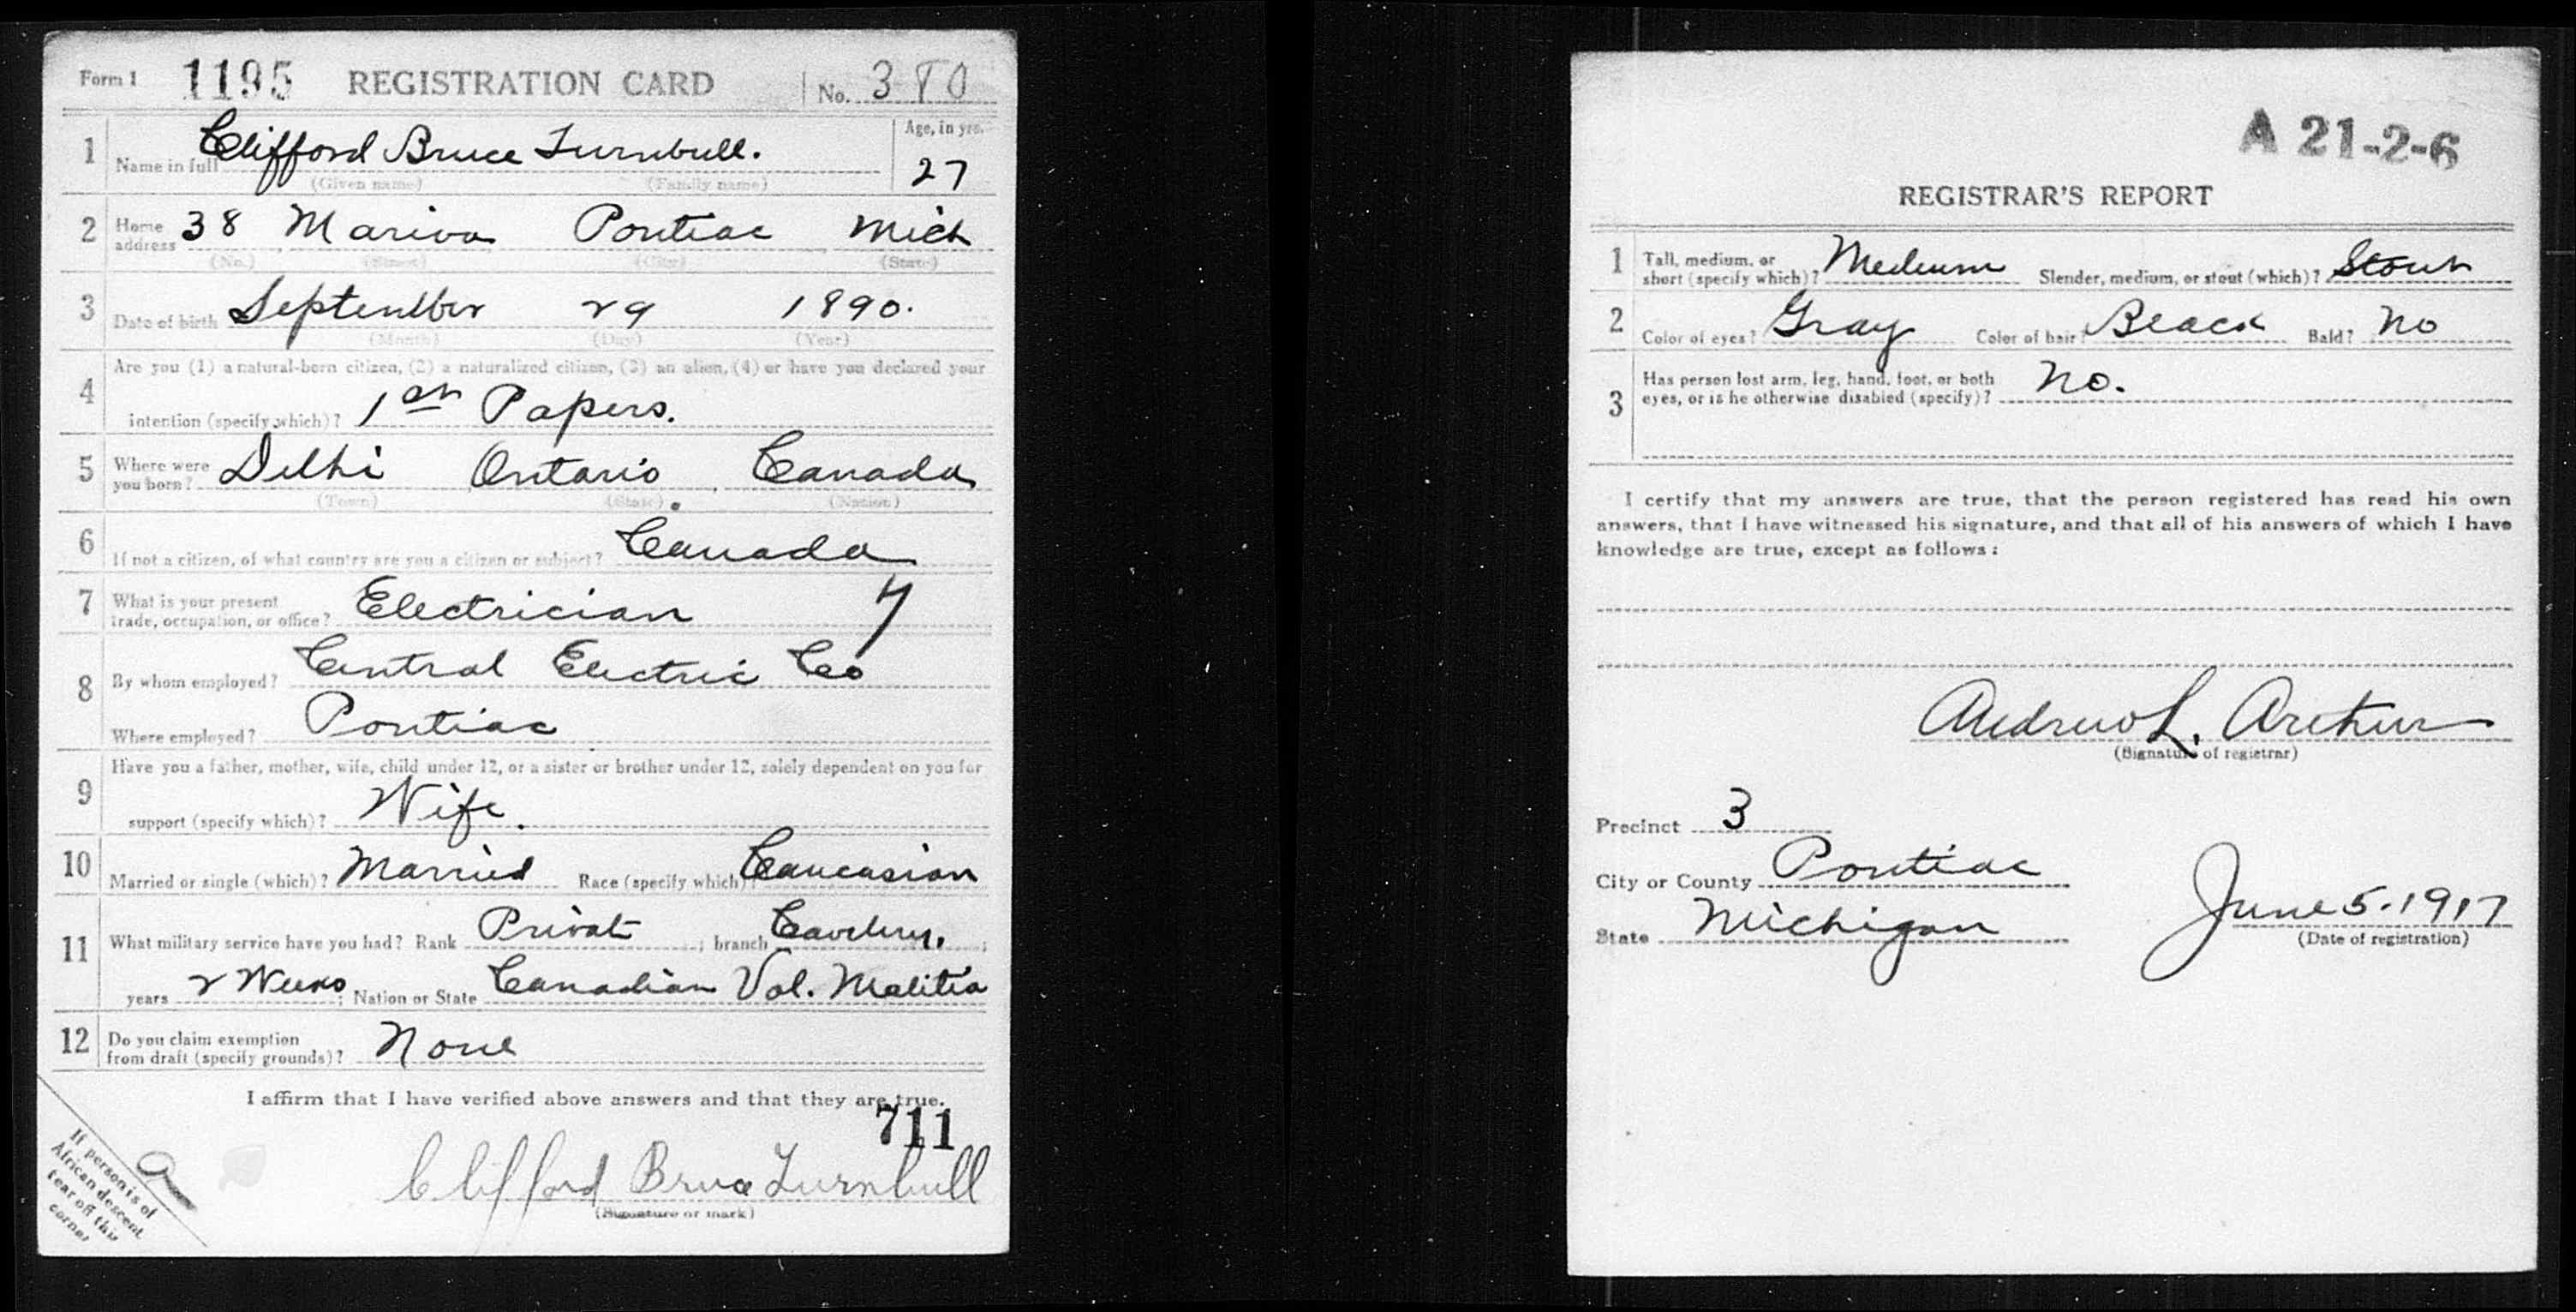 Form 1 1195 REGISTRATION CARD No. 380
1 Name in full Clifford Bruce Turnbull. Age, in yrs.
(Given name) (Family name) 27
2 Home address 38 Mariva Pontiac Mich
(No.) (Street) (City) (State)
3 Date of birth September 29 1890.
(Month) (Day) (Year)
4 Are you (1) a natural-born citizen, (2) a naturalized citizen, (3) an alien, (4) or have you declared your
intention (specify which)? 1st Papers.
5 Where were you born? Delhi Ontario, Canada
(Town) (State) (Nation)
6 If not a citizen, of what country are you a citizen or subject? Canada
7 What is your present trade, occupation, or office? Electrician
8 By whom employed? Central Electric Co
Where employed? Pontiac
9 Have you a father, mother, wife, child under 12, or a sister or brother under 12, solely dependent on you for
support (specify which)? Wife.
10 Married or single (which)? Married Race (specify which)? Caucasian
11 What military service have you had? Rank Private ; branch Cavelry. ;
years 2 Weeks ; Nation or State Canadian Vol. Melitia
12 Do you claim exemption from draft (specify grounds)? None
I affirm that I have verified above answers and that they are true.
711
Clifford Bruce Turnbull
(Signature or mark)
If person is of
African descent
tear off this
corner
A 21-2-6
REGISTRAR'S REPORT
1 Tall, medium, or short (specify which)? Medium Slender, medium, or stout (which)? Stout
2 Color of eyes? Gray Color of hair? Black Bald? No
3 Has person lost arm, leg, hand, foot, or both
eyes, or is he otherwise disabled (specify)? No.
I certify that my answers are true, that the person registered has read his own
answers, that I have witnessed his signature, and that all of his answers of which I have
knowledge are true, except as follows:
Andrew L. Arthur
(Signature of registrar)
Precinct 3
City or County Pontiac
State Michigan June 5. 1917
(Date of registration)